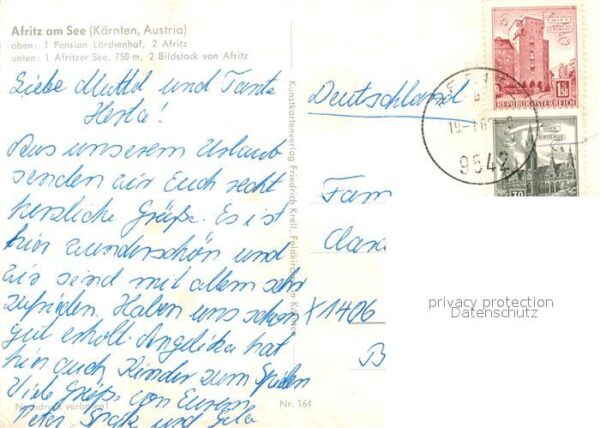 Afritz am See (Kärnten, Austria)
oben: 1 Pension Lärchenhof, 2 Afritz
unten: 1 Afritzer See, 750 m, 2 Bildstock von Afritz
Liebe Mutti und Tante
Herta!
Aus unserem Urlaub
senden wir Euch recht
herzliche Grüße. Es ist
hier wunderschön und
wir sind mit allem sehr
zufrieden. Haben uns schon
gut erholt. Angelika hat
hier auch Kinder zum Spielen
Viele Grüße von Eurem
Peter, und
Nachdruck verboten!
Nr. 164
Kunstkartenverlag Friedrich Krell, Feldkirchen in Kärnten
Deutschland
Fam
Clara
X1406
B
1.50
REPUBLIK ÖSTERREICH
WIEN
RATHAUS
9542
privacy protection
Datenschutz